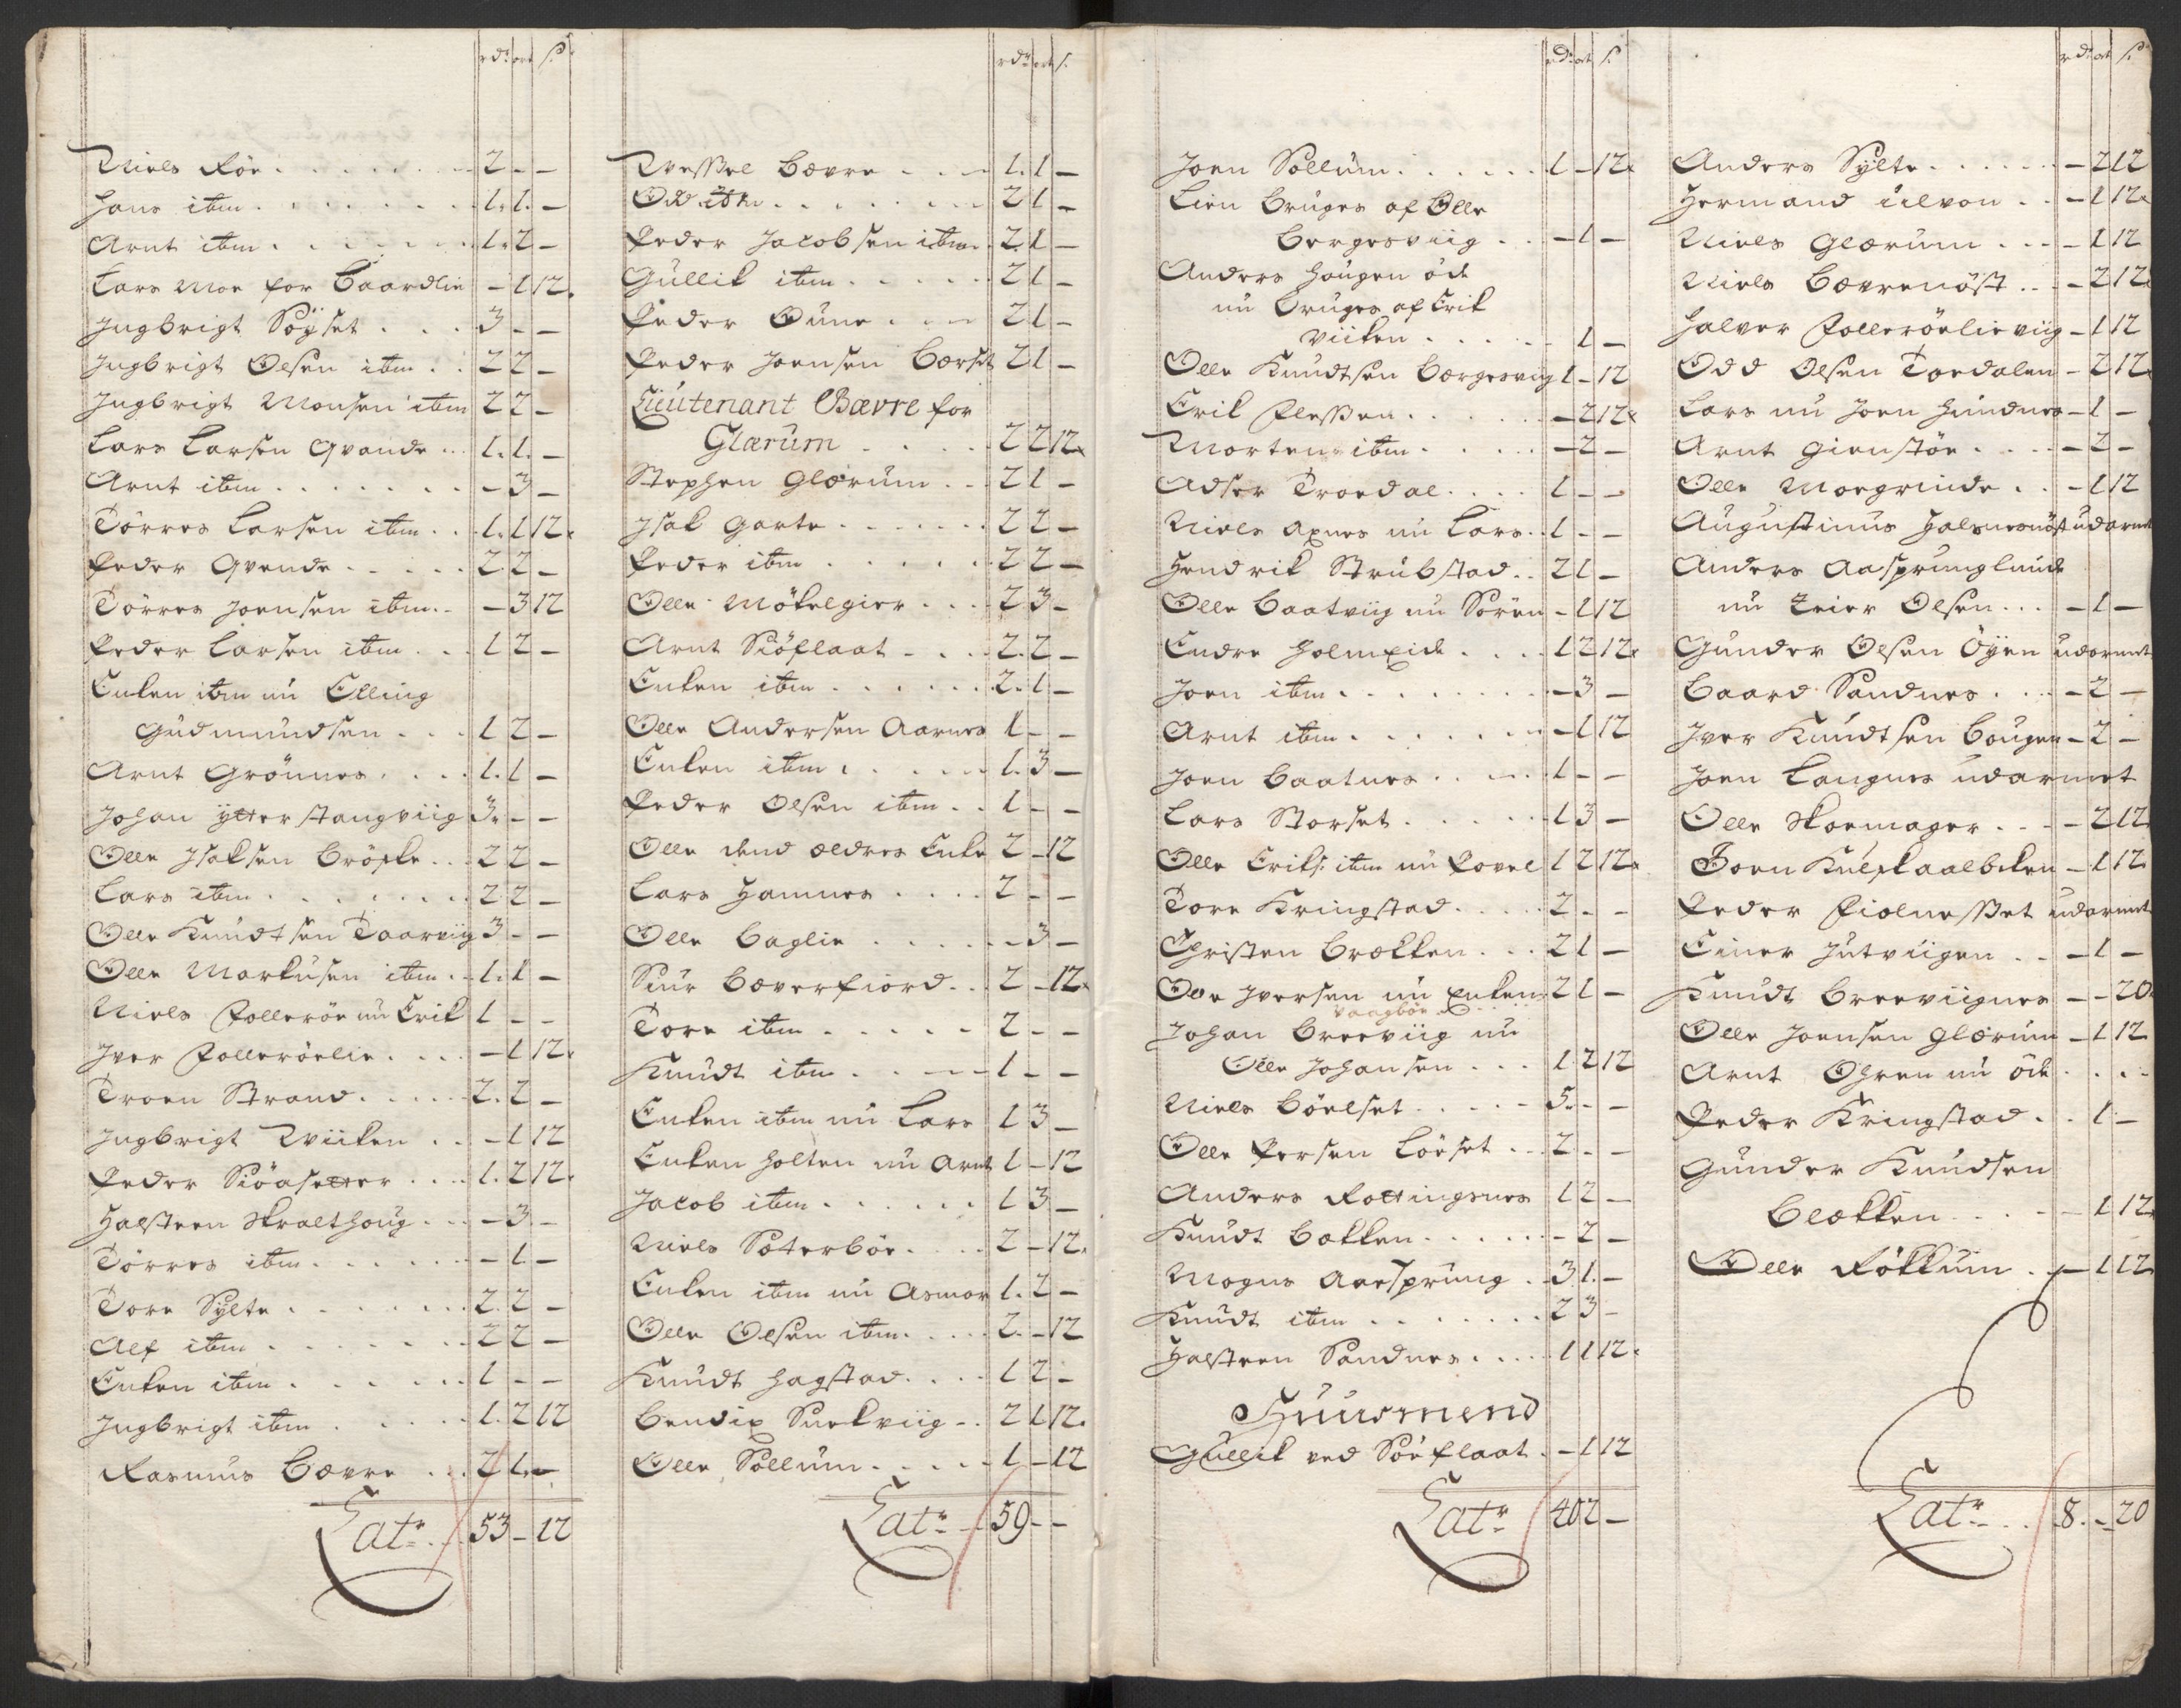 rdr ort s.
Niels Röe 2 - -
Hans itm 1. 1. -
Arnt itm 1. 2 -
Lars Moe for Baardlie - 1 12.
Ingbrigt Söyset 3 - -
Ingbrigt Olsen itm 2 2 -
Ingbrigt Monsen itm 2 2 -
Lars Larsen Qvande 1. 1. -
Arnt itm - 3 -
Törres Larsen itm 1. 1 12.
Peder Qvende 2. 2 -
Törres Joensen itm - 3 12
Peder Larsen itm 1 2 -
Enken itm nu Elling
Gudmundsen 1 2 -
Arnt Grönnes 1. 1 -
Johan ytter stangviig 3. - -
Olle Isaksen Bröske 2 2 -
Lars itm 2 2 -
Olle Knudtsen Taarviig 3 - -
Olle Markusen itm 1. 1 -
Niels Folleröe nu Erik 1 - -
Iver Folleröelie - 1 12.
Troen Strand 2. 2 -
Ingbrigt Wiiken - 1 12
Peder Siöasetter 1. 2 12.
Halsteen Skralthoug - 3 -
Törres itm - 1. -
Tore Sylte 2. 2 -
Alf itm 2 2 -
Enken itm 1 - -
Ingbrigt itm 1. 2 12
Rasmus Bævre 2 1. -
Latr 53 - 12
rdr ort s.
Wessel Bævre 1. 1 -
Odd itm 2 1 -
Peder Jacobsen itm 2. 1 -
Gullik itm 2 1 -
Peder Oune 2 1 -
Peder Joensen Bærset 2 1 -
Lieutenant Bævre for
Glærum 2 2 12.
Stephen Glærum 2 1 -
Isak Garte 2 2 -
Peder itm 2 2 -
Olle Mökelgier 2 3 -
Arnt Siöflaat 2. 2 -
Enken itm 2. 1 -
Olle Andersen Aarnes 1 - -
Enken itm 1. 3 -
Peder Olsen itm 1 - -
Olle dend ældres Enke 2 - 12
Lars Hamnes 2 - -
Olle Baglie - 3 -
Siur Bæverfiord 2 - 12.
Tore itm 2 - -
Knudt itm 1 - -
Enken itm nu Lars 1 3 -
Enken Holten nu Arnt 1 - 12
Jacob itm 1 3 -
Niels Säterböe 2 - 12.
Enken itm nu Asmor 1. 2 -
Olle Olsen itm 2. - 12
Knudt Hagstad 1 2 -
Bendix Surkviig 2 1 12.
Olle Sollum 1 - 12
Latr 59 - -
rdr ort s.
Joen Sollum 1 - 12.
Lien Bruges af Olle
Børgesviig - 1 -
Anders Haugen öde
nu Bruges af Erik
Viiken 1 -
Olle Knudtsen Børgesviig 1 - 12
Erik Plessen - 2 12.
Morten itm - 2 -
Adser Troedal 1 - -
Niels Axnes nu Lars 1 - -
Hendrik Strubstad 2 1 -
Olle Baatviig nu Sören - 1 12
Endre Holmeide 1 2 12.
Joen itm - 3 -
Arnt itm - 1 12
Joen Baatnes 1 - -
Lars Storset 1 3 -
Olle Eriks: itm nu Povel 1 2 12.
Tore Kringstad 2 - -
Christen Brækken 2 1 -
Ole Iversen nu Enken 2 1 -
Vaagböe
Johan Breeviig nu
Olle Johansen 1 2 12
Niels Böelset 5. - -
Olle Persen Löeset 2 - -
Anders Rottingsnes 1 2 -
Knudt Bakken - 2 -
Mogns Aaesprung 3 1. -
Knudt itm 2 3 -
Halsteen Sandnes 1 1 12.
Huusmend
Gullik ved Söeflaat - 1 12
Latr 40 2 -
rdr ort s.
Anders Sylte - 2 12
Hermand Ulvon - 1 12.
Niels Glærum - 1 12
Niels Bævrenöst - 2 12.
Halver Folleröelie viig - 1 12
Odd Olsen Toedalen - 2 12.
Lars nu Joen Hundnes - 1 -
Arnt Gienstöe - 2 -
Olle Moegrinde - 1 12
Augustinus Halsnesnöst udarmet
Anders Aasprunglund
nu Peier Olsen - 1 -
Gunder Olsen Öyen udarmet
Baard Sandnes - 2 -
Iver Knudtsen Bougen - 2 -
Joen Langnes udarmet
Olle Skoemager - 2 12.
Joen Knipkaalboken - 1 12.
Peder Fiolnesset udarmet
Einer Jutviigen - 1 -
Knudt Breeviignes - - 20.
Olle Joensen Glærum - 1 12
Arnt Ohren nu öde
Peder Kringstad 1 -
Gunder Knudsen
Blækken - 1 12.
Olle Rökkum - 1 12
Latr 8. - 20